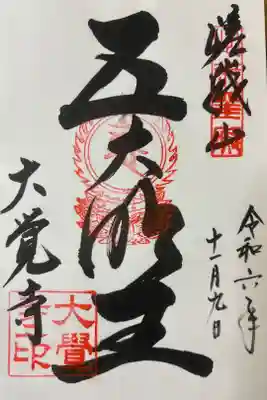 嵯峨山
五大明王
大覚寺
令和六年
十一月九日
大覺
寺印